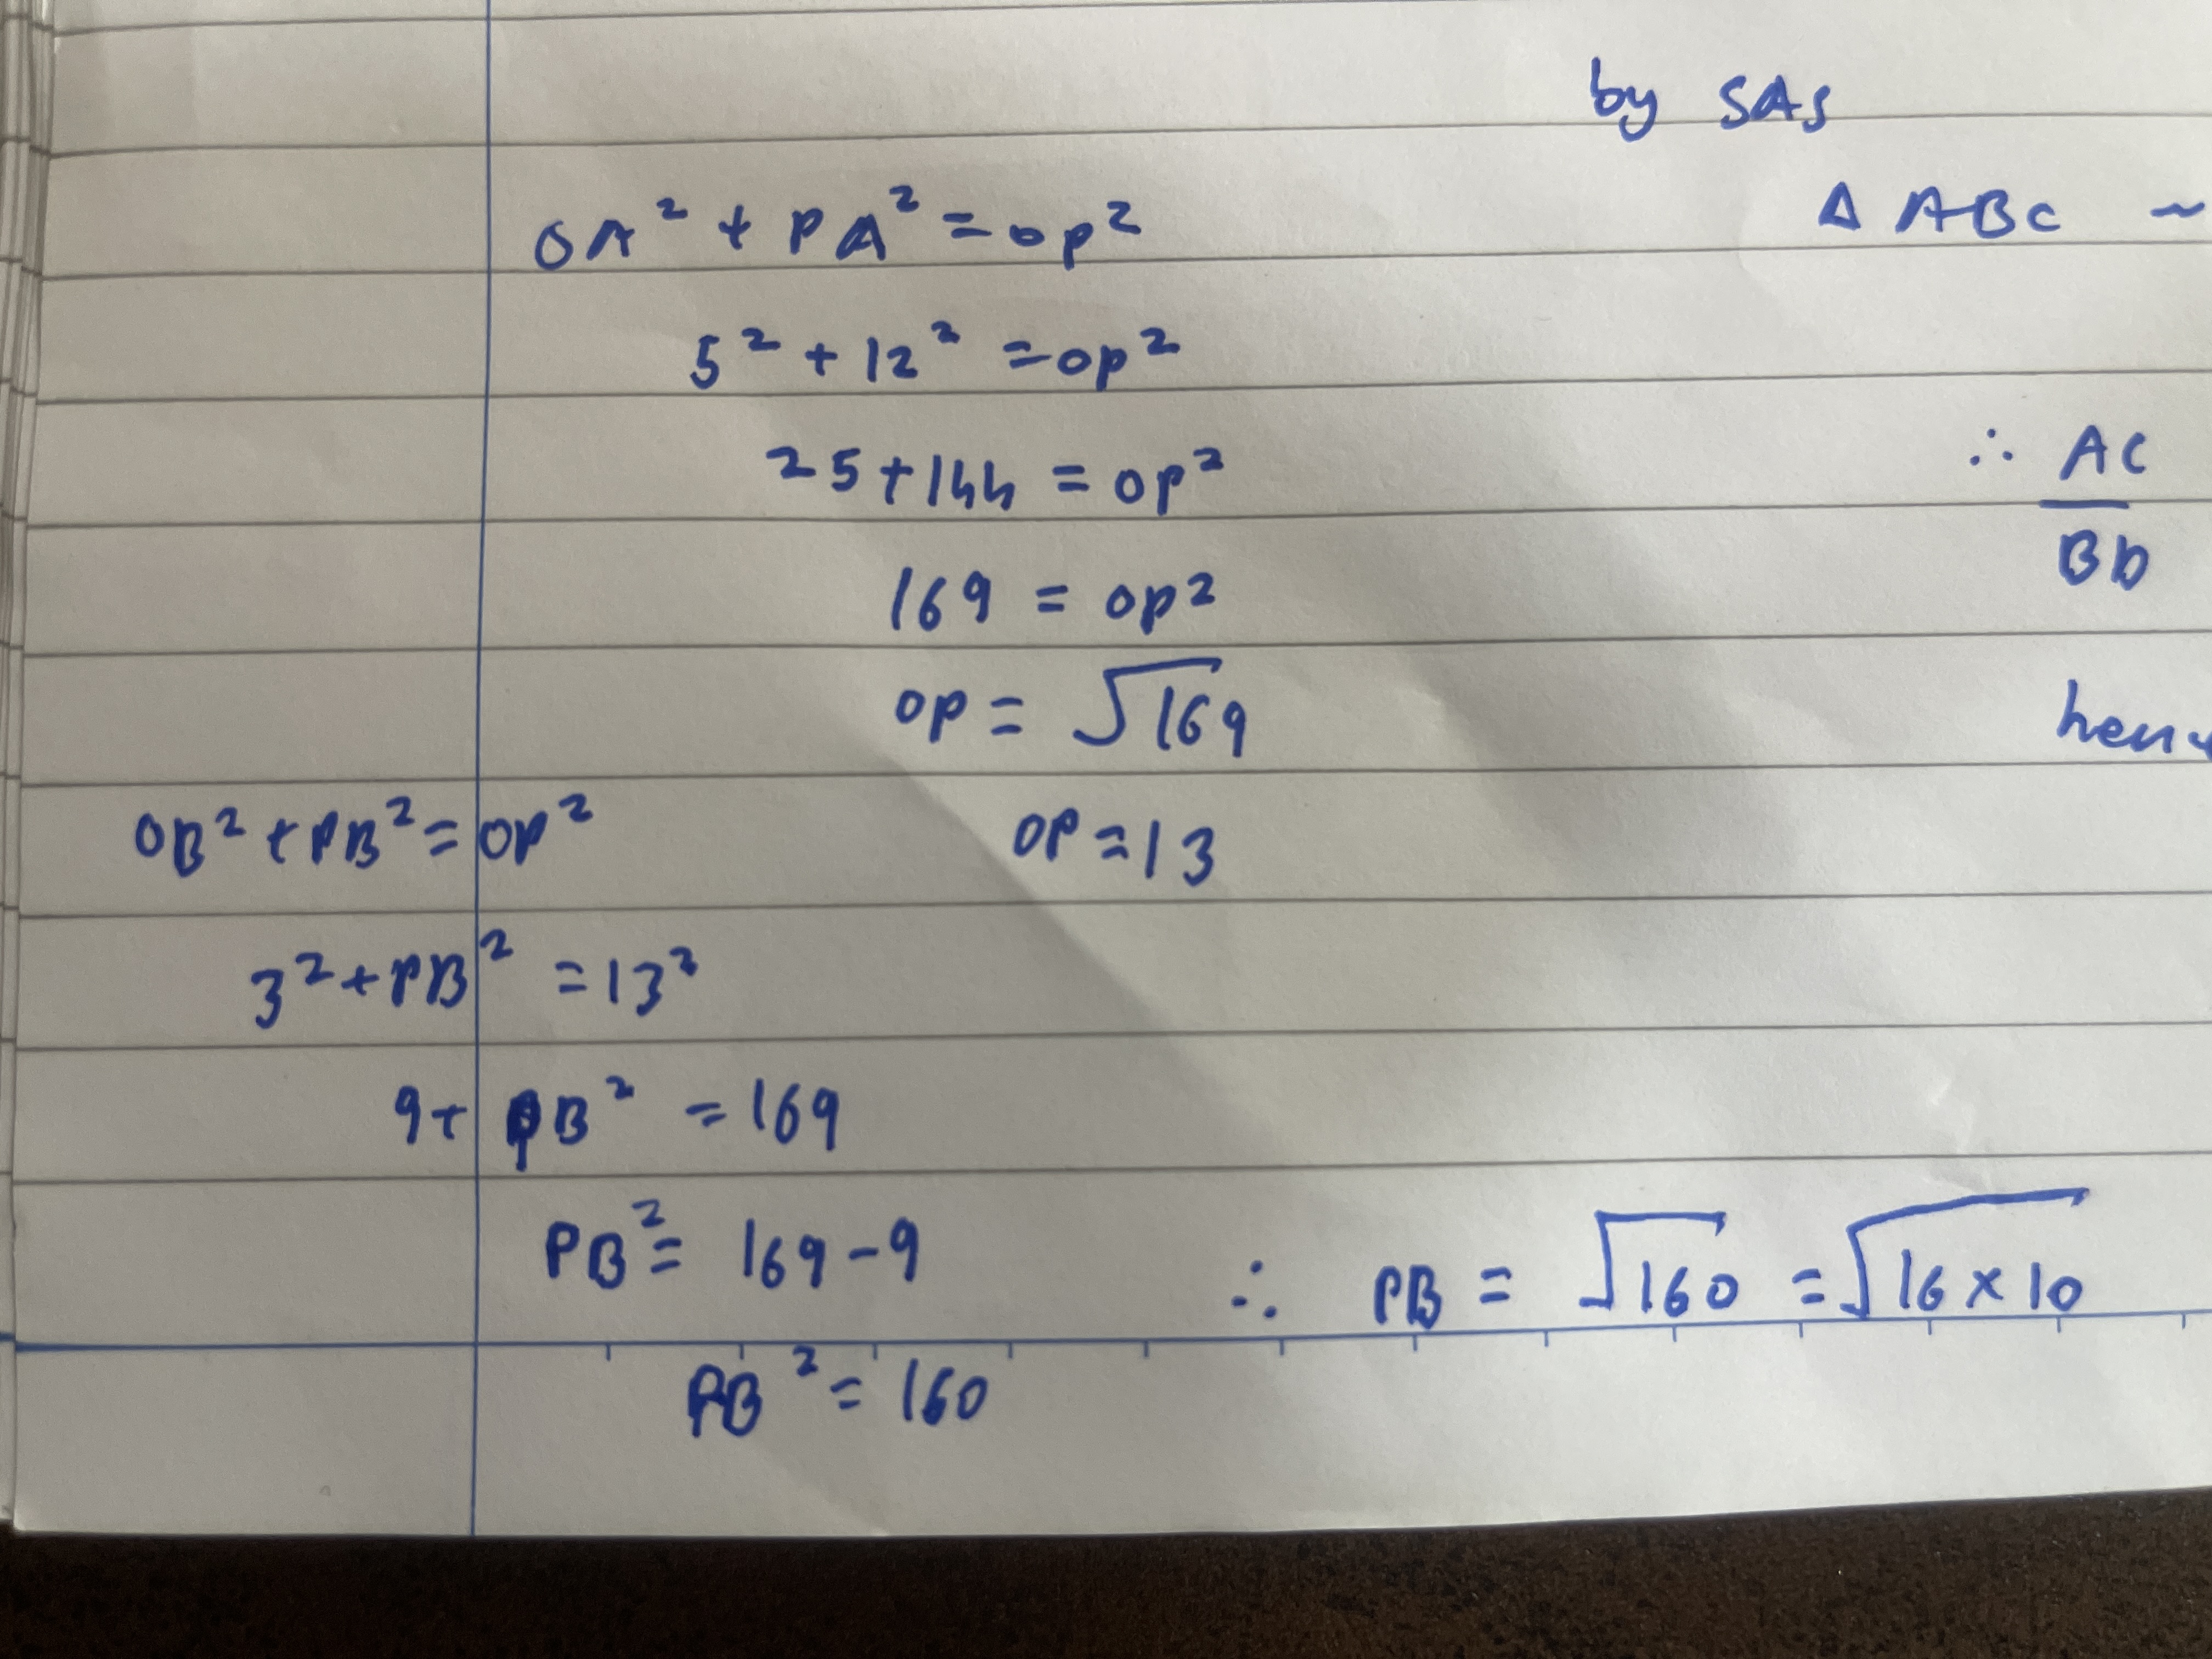 by SAS
△ ABC ~
∴ AC
BD
OA² + PA² = OP²
5² + 12² = OP²
25 + 144 = OP²
169 = OP²
OP = √169
OP = 13
OB² + PB² = OP²
3² + PB² = 13²
9 + PB² = 169
PB² = 169 - 9
PB² = 160
∴ PB = √160 = √16 × 10